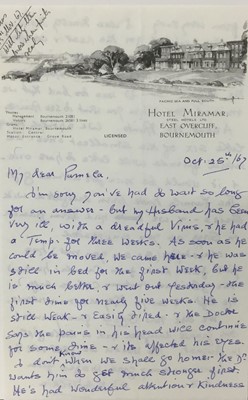 FACING SEA AND FULL SOUTH
HOTEL MIRAMAR
STEEL HOTELS LTD.
EAST OVERCLIFF
BOURNEMOUTH
Phones:
Management: Bournemouth
Visitors: Bournemouth
Hotel Miramar, Bournemouth
Station: Central
Motor Entrance: Grove Road
LICENSED
Oct. 25th/67
My dear Pamela,
I'm sorry you've had to wait so long
for an answer - but my Husband has been
very ill, with a dreadful Virus, & he had
a Temp: for three weeks. As soon as he
could be moved, we came here - & he was
still in bed for the first week, but he
is much better, & went out yesterday - the
first time for nearly five weeks. He is
still weak - & Easily tired - & the Doctor
says the pains in his head will continue
for some time - & it's affected his eyes.
I don't know when we shall go home - the Dr.
wants him to get much stronger first.
He's had wonderful attention & kindness